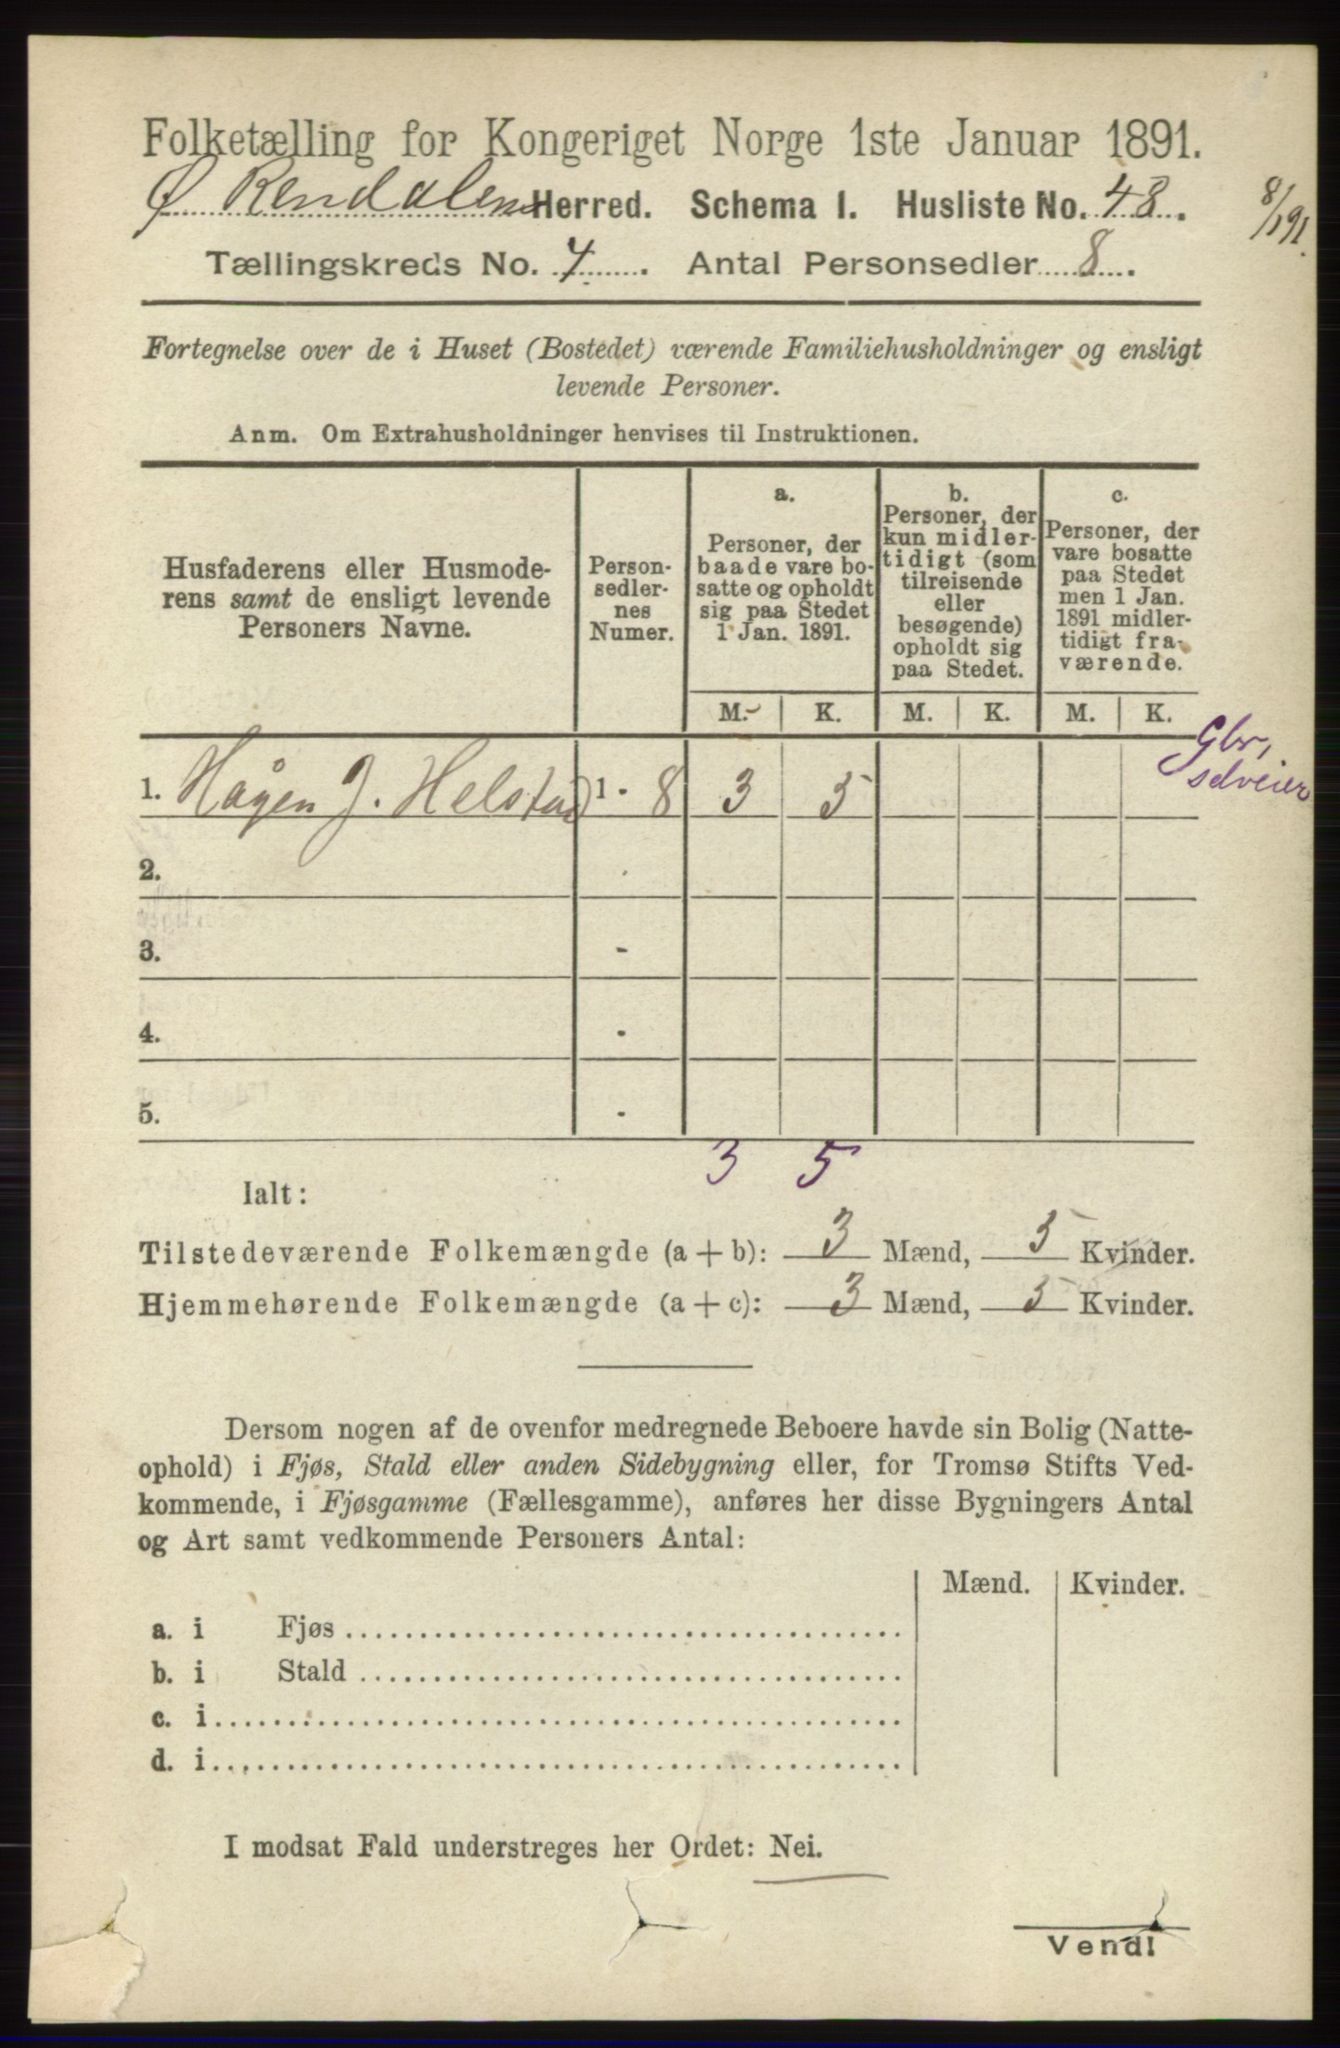 Folketælling for Kongeriget Norge 1ste Januar 1891.
Ø Rendalens Herred. Schema I. Husliste No. 48.
8/1 91.
Tællingskreds No. 4. Antal Personsedler 8.
Fortegnelse over de i Huset (Bostedet) værende Familiehusholdninger og ensligt
levende Personer.
Anm. Om Extrahusholdninger henvises til Instruktionen.
Husfaderens eller Husmode-
rens samt de ensligt levende
Personers Navne.
Person-
sedler-
nes
Numer.
a.
Personer, der
baade vare bo-
satte og opholdt
sig paa Stedet
1 Jan. 1891.
b.
Personer, der
kun midler-
tidigt (som
tilreisende
eller
besøgende)
opholdt sig
paa Stedet.
c.
Personer, der
vare bosatte
paa Stedet
men 1 Jan.
1891 midler-
tidigt fra-
værende.
M. K. M. K. M. K.
Gbr,
selveier
1. Hågen J. Helstad 1 - 8 3 5
2. -
3. -
4. -
5. -
3 5
Ialt:
Tilstedeværende Folkemængde (a + b): 3 Mænd, 5 Kvinder.
Hjemmehørende Folkemængde (a + c): 3 Mænd, 5 Kvinder.
Dersom nogen af de ovenfor medregnede Beboere havde sin Bolig (Natte-
ophold) i Fjøs, Stald eller anden Sidebygning eller, for Tromsø Stifts Ved-
kommende, i Fjøsgamme (Fællesgamme), anføres her disse Bygningers Antal
og Art samt vedkommende Personers Antal:
Mænd. Kvinder.
a. i Fjøs
b. i Stald
c. i
d. i
I modsat Fald understreges her Ordet: Nei.
Vend!